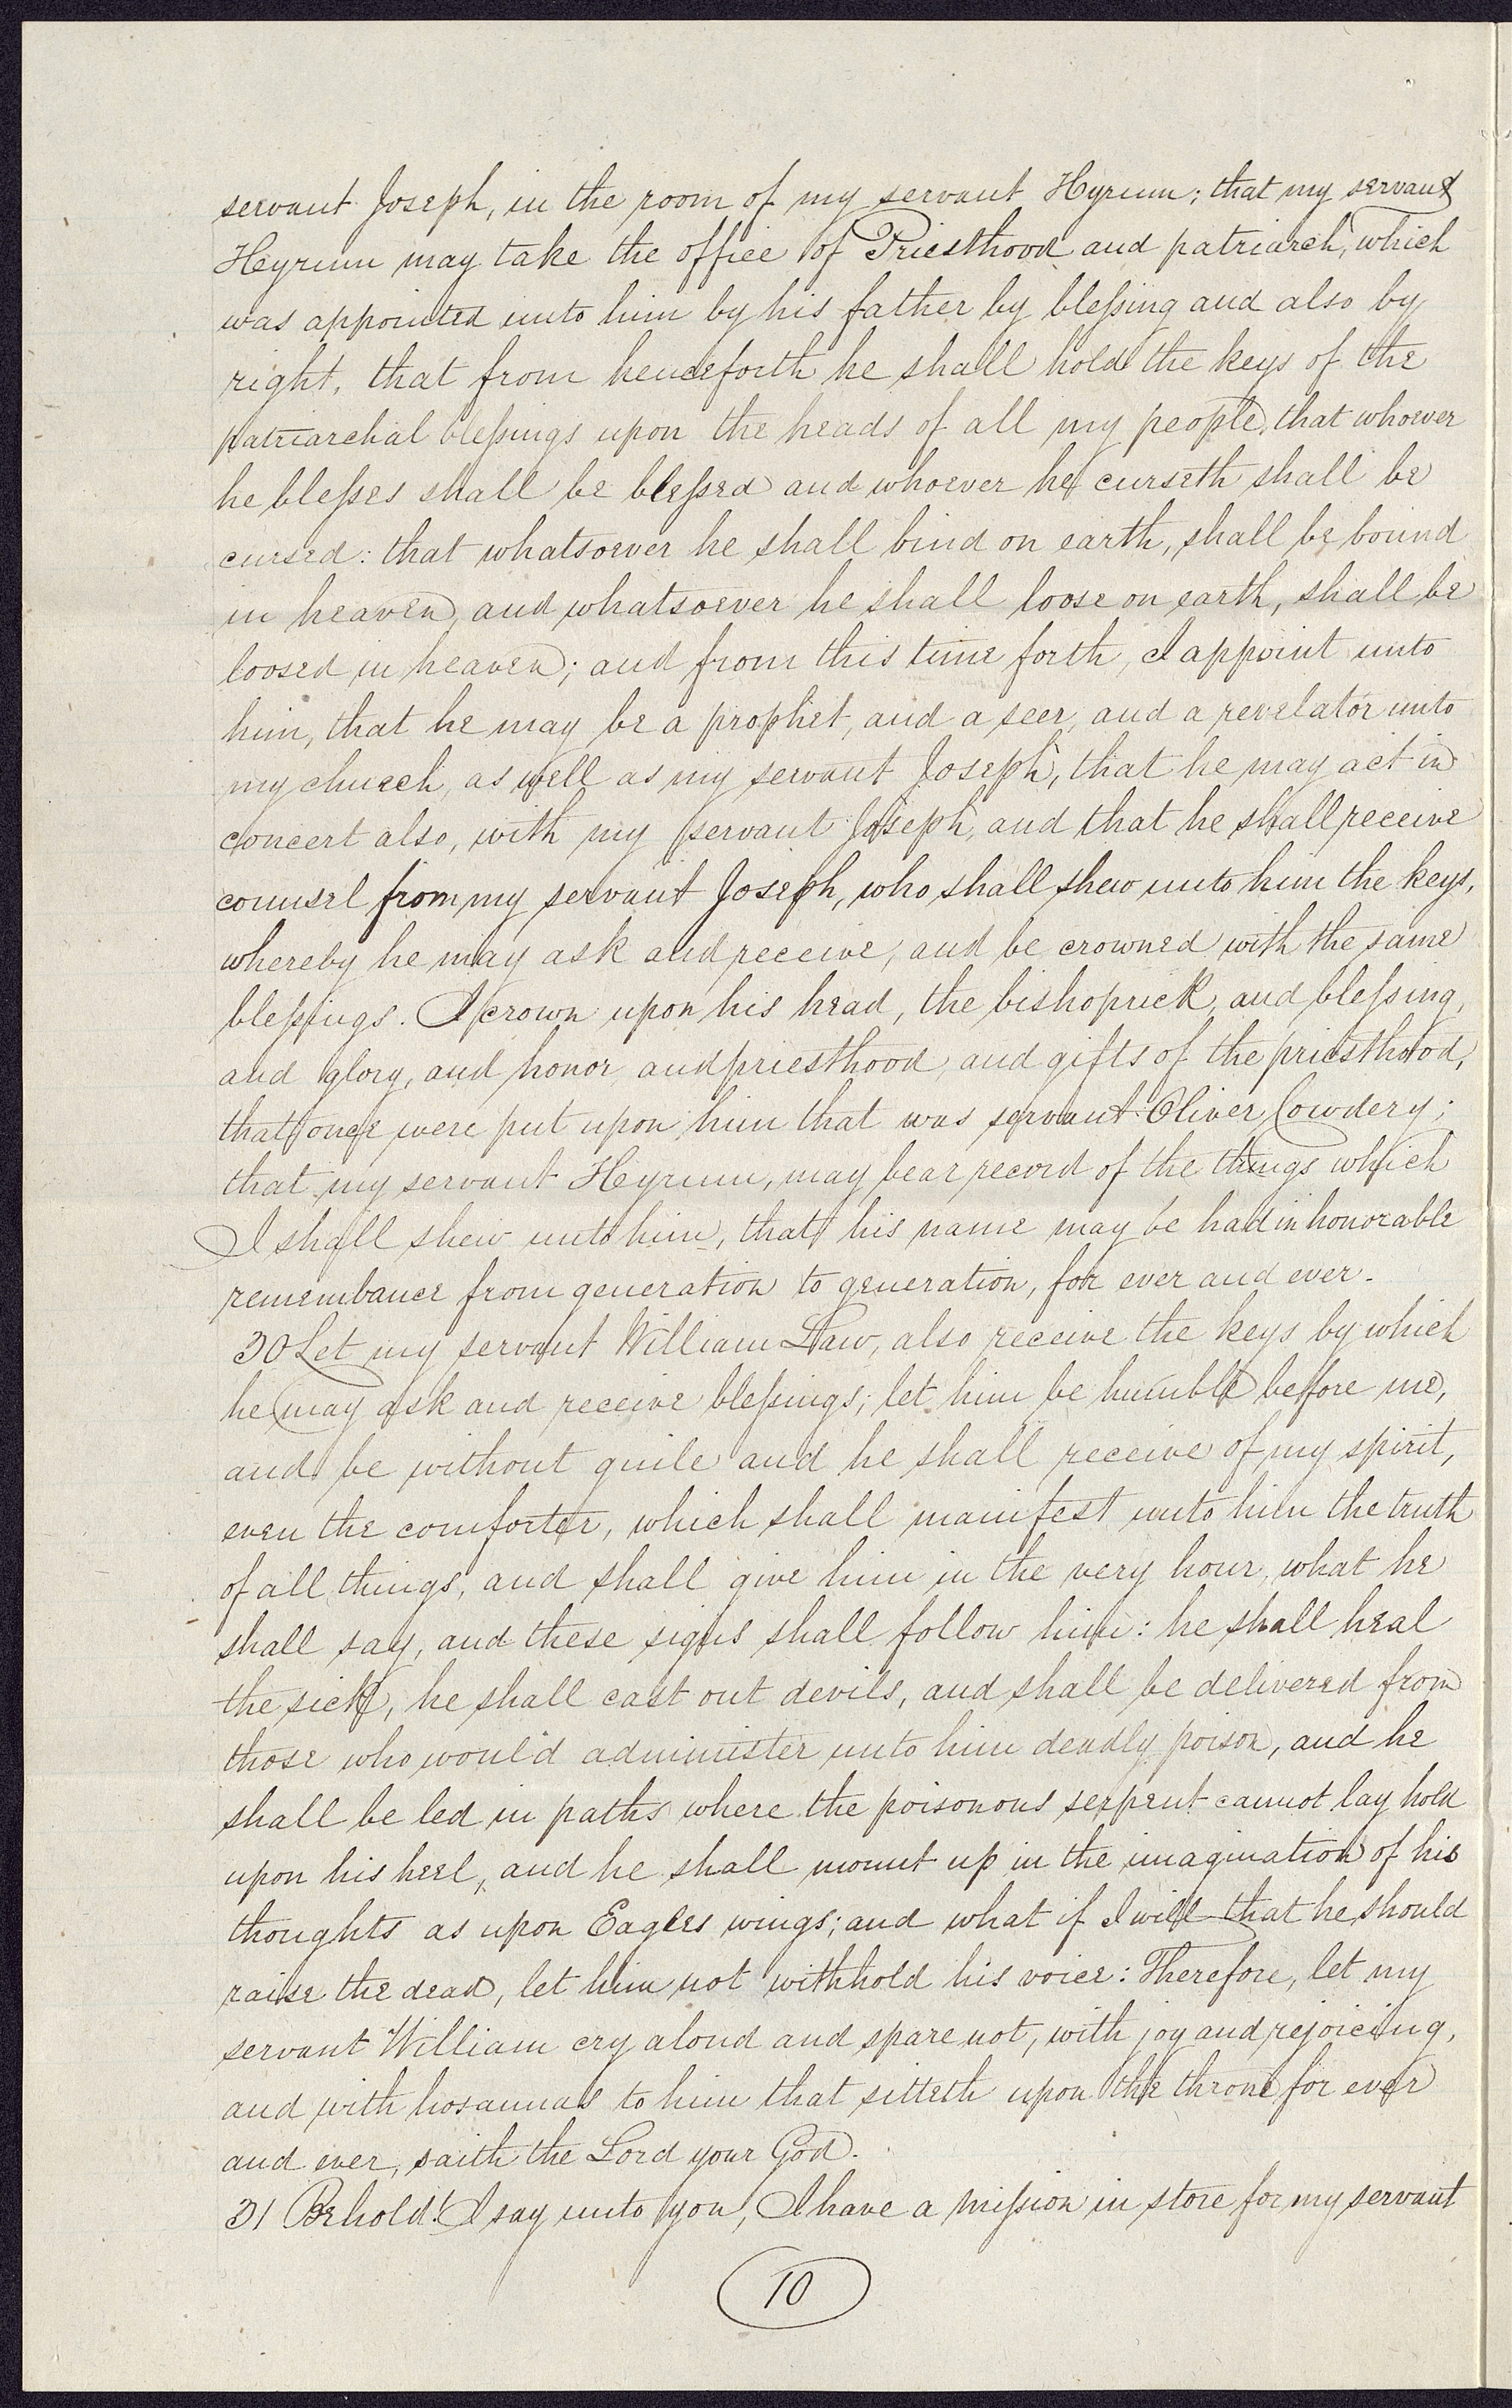 servant Joseph, in the room of my servant Hyrum; that my servant
Heyrum may take the office of Priesthood and patriarch, which
was appointed unto him by his father by blessing and also by
right, that from henceforth he shall hold the keys of the
patriarchal blessings upon the heads of all my people, that whoever
he blesses shall be blessed and whoever he curseth shall be
cursed: that whatsoever he shall bind on earth, shall be bound
in heaven, and whatsoever he shall loose on earth, shall be
loosed in heaven; and from this time forth, I appoint unto
him, that he may be a prophet, and a seer, and a revelator unto
my church, as well as my servant Joseph, that he may act in
concert also, with my servant Joseph, and that he shall receive
counsel from my servant Joseph, who shall shew unto him the keys,
whereby he may ask and receive, and be crowned with the same
blessings. I crown upon his head, the bishoprick, and blessing,
and glory, and honor, and priesthood, and gifts of the priesthood,
that once were put upon him that was servant Oliver Cowdery;
that my servant Heyrum, may bear record of the things which
I shall shew unto him, that his name may be had in honorable
remembance from generation to generation, for ever and ever.
30 Let my servant William Law, also receive the keys by which
he may ask and receive blessings; let him be humble before me,
and be without guile and he shall receive of my spirit,
even the comforter, which shall manifest unto him the truth
of all things, and shall give him in the very hour, what he
shall say, and these signs shall follow him: he shall heal
the sick, he shall cast out devils, and shall be delivered from
those who would administer unto him deadly poison, and he
shall be led in paths where the poisonous serpent cannot lay hold
upon his heel, and he shall mount up in the imagination of his
thoughts as upon Eagles wings; and what if I will that he should
raise the dead, let him not withhold his voice: Therefore, let my
servant William cry aloud and spare not, with joy and rejoicing,
and with hosannas to him that sitteth upon the throne for ever
and ever, saith the Lord your God.
31 Behold! I say unto you, I have a mission in store for my servant
10